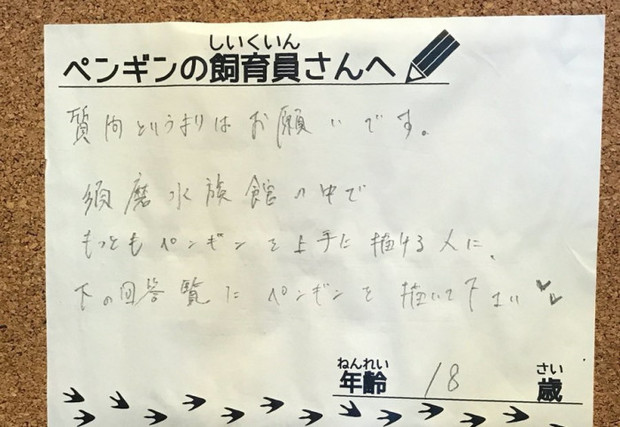 しいくいん
ペンギンの飼育員さんへ
質問というよりはお願いです。
須磨水族館の中で
もっともペンギンを上手に描ける人に、
下の回答覧にペンギンを描いて下さい♥♥
ねんれい さい
年齢 18 歳